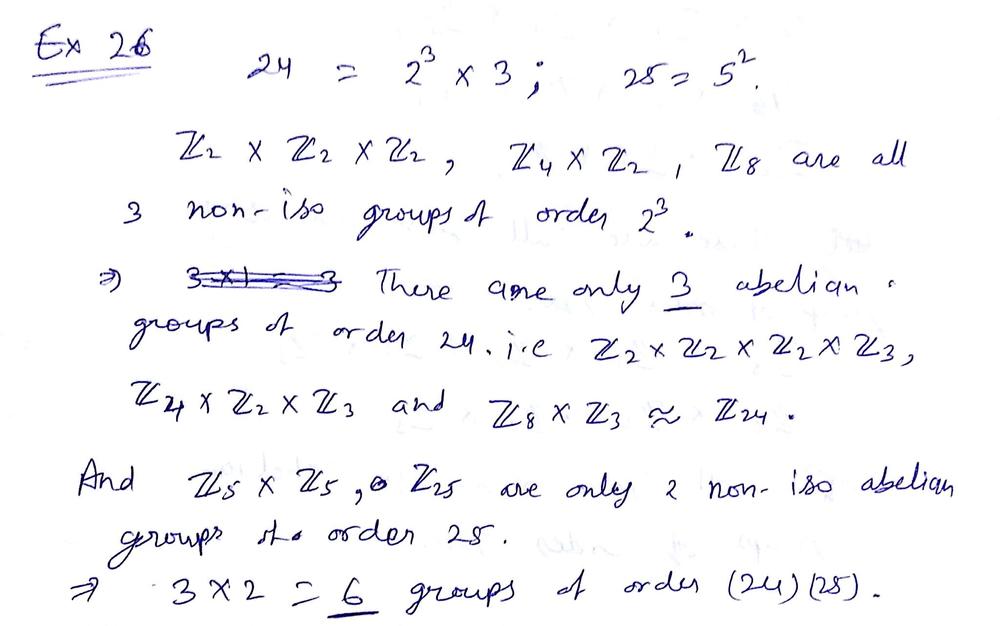 Ex 26
24 = 2³ × 3 ; 25 = 5².
ℤ₂ × ℤ₂ × ℤ₂ , ℤ₄ × ℤ₂ , ℤ₈ are all
3 non-iso groups of order 2³.
⇒ ~~3×1 = 3~~ There are only 3 abelian
groups of order 24. i.e ℤ₂ × ℤ₂ × ℤ₂ × ℤ₃,
ℤ₄ × ℤ₂ × ℤ₃ and ℤ₈ × ℤ₃ ≈ ℤ₂₄.
And ℤ₅ × ℤ₅ , ℤ₂₅ are only 2 non-iso abelian
groups of order 25.
⇒ 3 × 2 = 6 groups of order (24)(25).